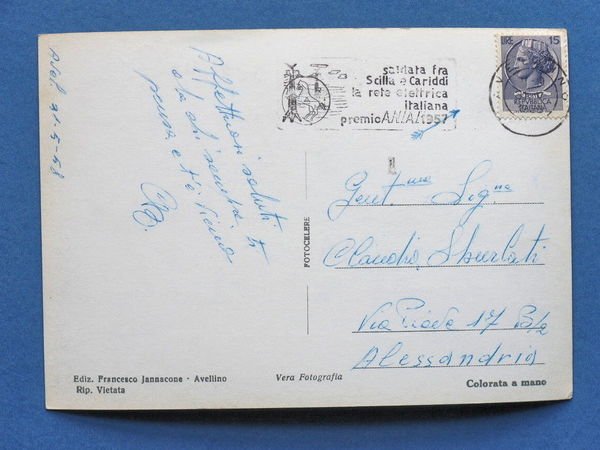 Avel. 31-5-58
Affettuosi saluti
a te che sempre ti
pensa e t'è vicino
saldata fra
Scilla e Cariddi
la rete elettrica
italiana
premio ANIAI 1957
LIRE 15
REPVBBLICA
ITALIANA
Gent.ma Sig.na
Claudia Sburlati
Via Piave 17 Bis
Alessandria
FOTOCELERE
Ediz. Francesco Jannacone - Avellino
Rip. Vietata
Vera Fotografia
Colorata a mano